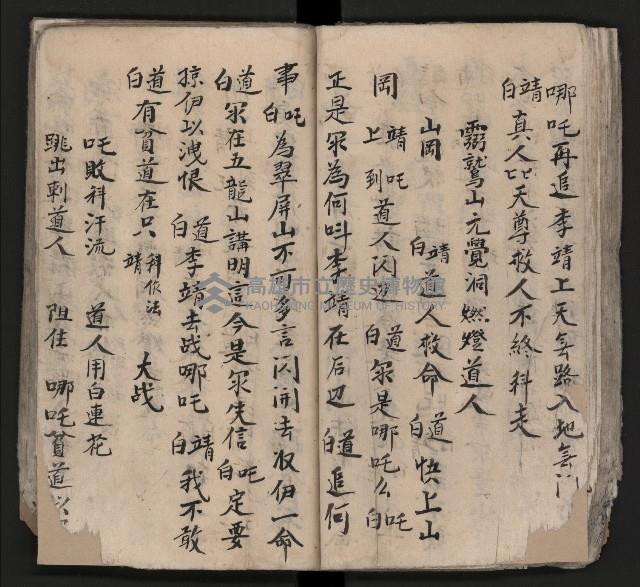 哪吒再追李靖上天無路入地無门
靖白真人匕匕天尊救人不終科走
靈鷲山元覺洞燃燈道人
山岡 靖白道人救命 道白快上山
岡 靖吒上到道人閃过 道白你是哪吒么 吒白
正是你為何叫李靖在后边 道白追何
事 吒白為翠屏山不可多言闪開去取伊一命
道白你在五龍山講明這今是你失信 吒白定要
掠伊以洩恨 道白李靖去战哪吒 靖白我不敢
道白有貧道在只 靖科依法 大战
吒敗科汗流 道人用白連花
跳出刺道人 阻住 哪吒貧道以
高雄市立歷史博物館
KAOHSIUNG MUSEUM OF HISTORY